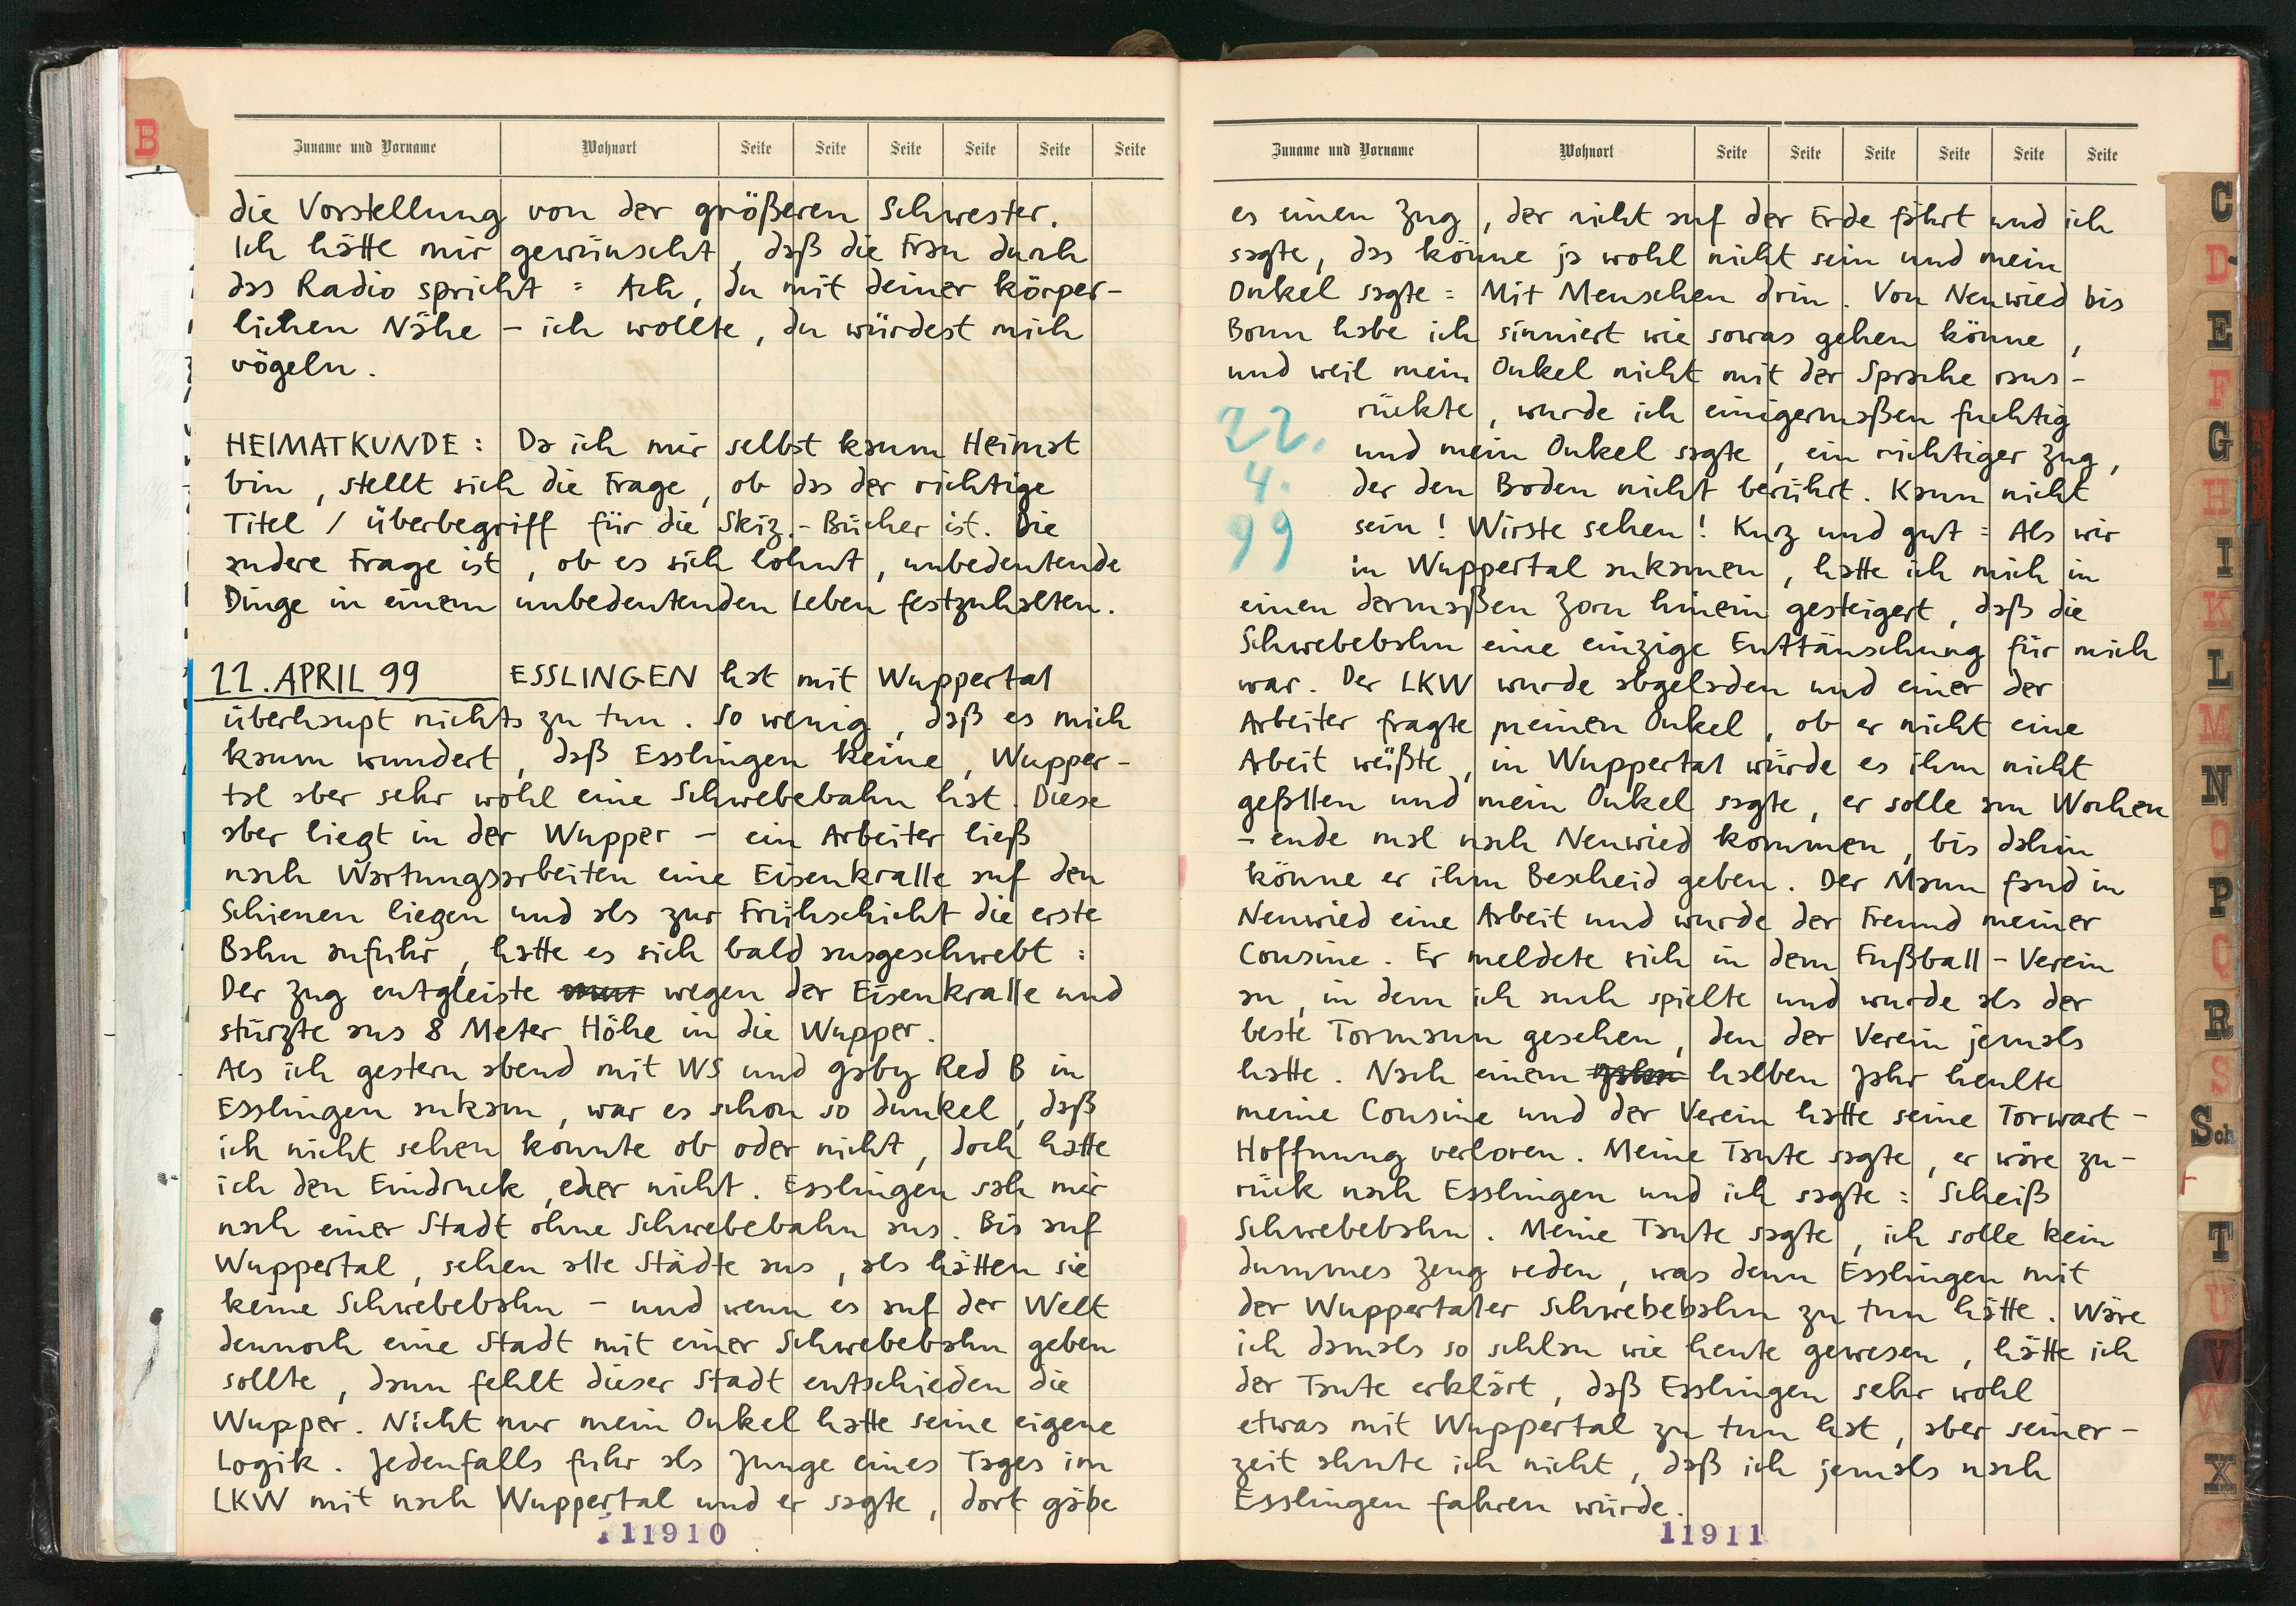 B
Zuname und Vorname Wohnort Seite Seite Seite Seite Seite Seite
die Vorstellung von der größeren Schwester.
Ich hätte mir gewünscht, daß die Frau durch
das Radio spricht: Ach, du mit deiner körper-
lichen Nähe - ich wollte, du würdest mich
vögeln.
HEIMATKUNDE: Da ich mir selbst kaum Heimat
bin, stellt sich die Frage, ob das der richtige
Titel / überbegriff für die Skiz.-Bücher ist. Die
andere Frage ist, ob es sich lohnt, unbedeutende
Dinge in einem unbedeutenden Leben festzuhalten.
22. APRIL 99 ESSLINGEN hat mit Wuppertal
überhaupt nichts zu tun. So wenig, daß es mich
kaum wundert, daß Esslingen keine, Wupper-
tal aber sehr wohl eine Schwebebahn hat. Diese
aber liegt in der Wupper - ein Arbeiter ließ
nach Wartungsarbeiten eine Eisenkralle auf den
Schienen liegen und als zur Frühschicht die erste
Bahn anfuhr, hatte es sich bald ausgeschwebt:
Der Zug entgleiste wegen der Eisenkralle und
stürzte aus 8 Meter Höhe in die Wupper.
Als ich gestern abend mit WS und Gaby Red B in
Esslingen ankam, war es schon so dunkel, daß
ich nicht sehen konnte ob oder nicht, doch hatte
ich den Eindruck, eher nicht. Esslingen sah mir
nach einer Stadt ohne Schwebebahn aus. Bis auf
Wuppertal, sehen alle Städte aus, als hätten sie
keine Schwebebahn - und wenn es auf der Welt
dennoch eine Stadt mit einer Schwebebahn geben
sollte, dann fehlt dieser Stadt entschieden die
Wupper. Nicht nur mein Onkel hatte seine eigene
Logik. Jedenfalls fuhr als Junge eines Tages im
LKW mit nach Wuppertal und er sagte, dort gäbe
11910
Zuname und Vorname Wohnort Seite Seite Seite Seite Seite Seite
es einen Zug, der nicht auf der Erde fährt und ich
sagte, das könne ja wohl nicht sein und mein
Onkel sagte: Mit Menschen drin. Von Neuwied bis
Bonn habe ich sinniert wie sowas gehen könne,
und weil mein Onkel nicht mit der Sprache raus-
rückte, wurde ich einigermaßen fuchtig
und mein Onkel sagte, ein richtiger Zug,
der den Boden nicht berührt. Kann nicht
sein! Wirste sehen! Kurz und gut: Als wir
in Wuppertal ankamen, hatte ich mich in
22.
4.
99
einen dermaßen Zorn hinein gesteigert, daß die
Schwebebahn eine einzige Enttäuschung für mich
war. Der LKW wurde abgeladen und einer der
Arbeiter fragte meinen Onkel, ob er nicht eine
Arbeit wüßte, in Wuppertal würde es ihm nicht
gefallen und mein Onkel sagte, er solle am Wochen
- ende mal nach Neuwied kommen, bis dahin
könne er ihm Bescheid geben. Der Mann fand in
Neuwied eine Arbeit und wurde der Freund meiner
Cousine. Er meldete sich in dem Fußball-Verein
an, in dem ich auch spielte und wurde als der
beste Tormann gesehen, den der Verein jemals
hatte. Nach einem halben Jahr heulte
meine Cousine und der Verein hatte seine Torwart-
Hoffnung verloren. Meine Tante sagte, er wäre zu-
rück nach Esslingen und ich sagte: Scheiß
Schwebebahn. Meine Tante sagte, ich solle kein
dummes Zeug reden, was denn Esslingen mit
der Wuppertaler Schwebebahn zu tun hätte. Wäre
ich damals so schlau wie heute gewesen, hätte ich
der Tante erklärt, daß Esslingen sehr wohl
etwas mit Wuppertal zu tun hat, aber seiner-
zeit ahnte ich nicht, daß ich jemals nach
Esslingen fahren würde.
11911
C
D
E
F
G
H
I
K
L
M
N
O
P
Q
R
S
Sch
T
U
V
W
X